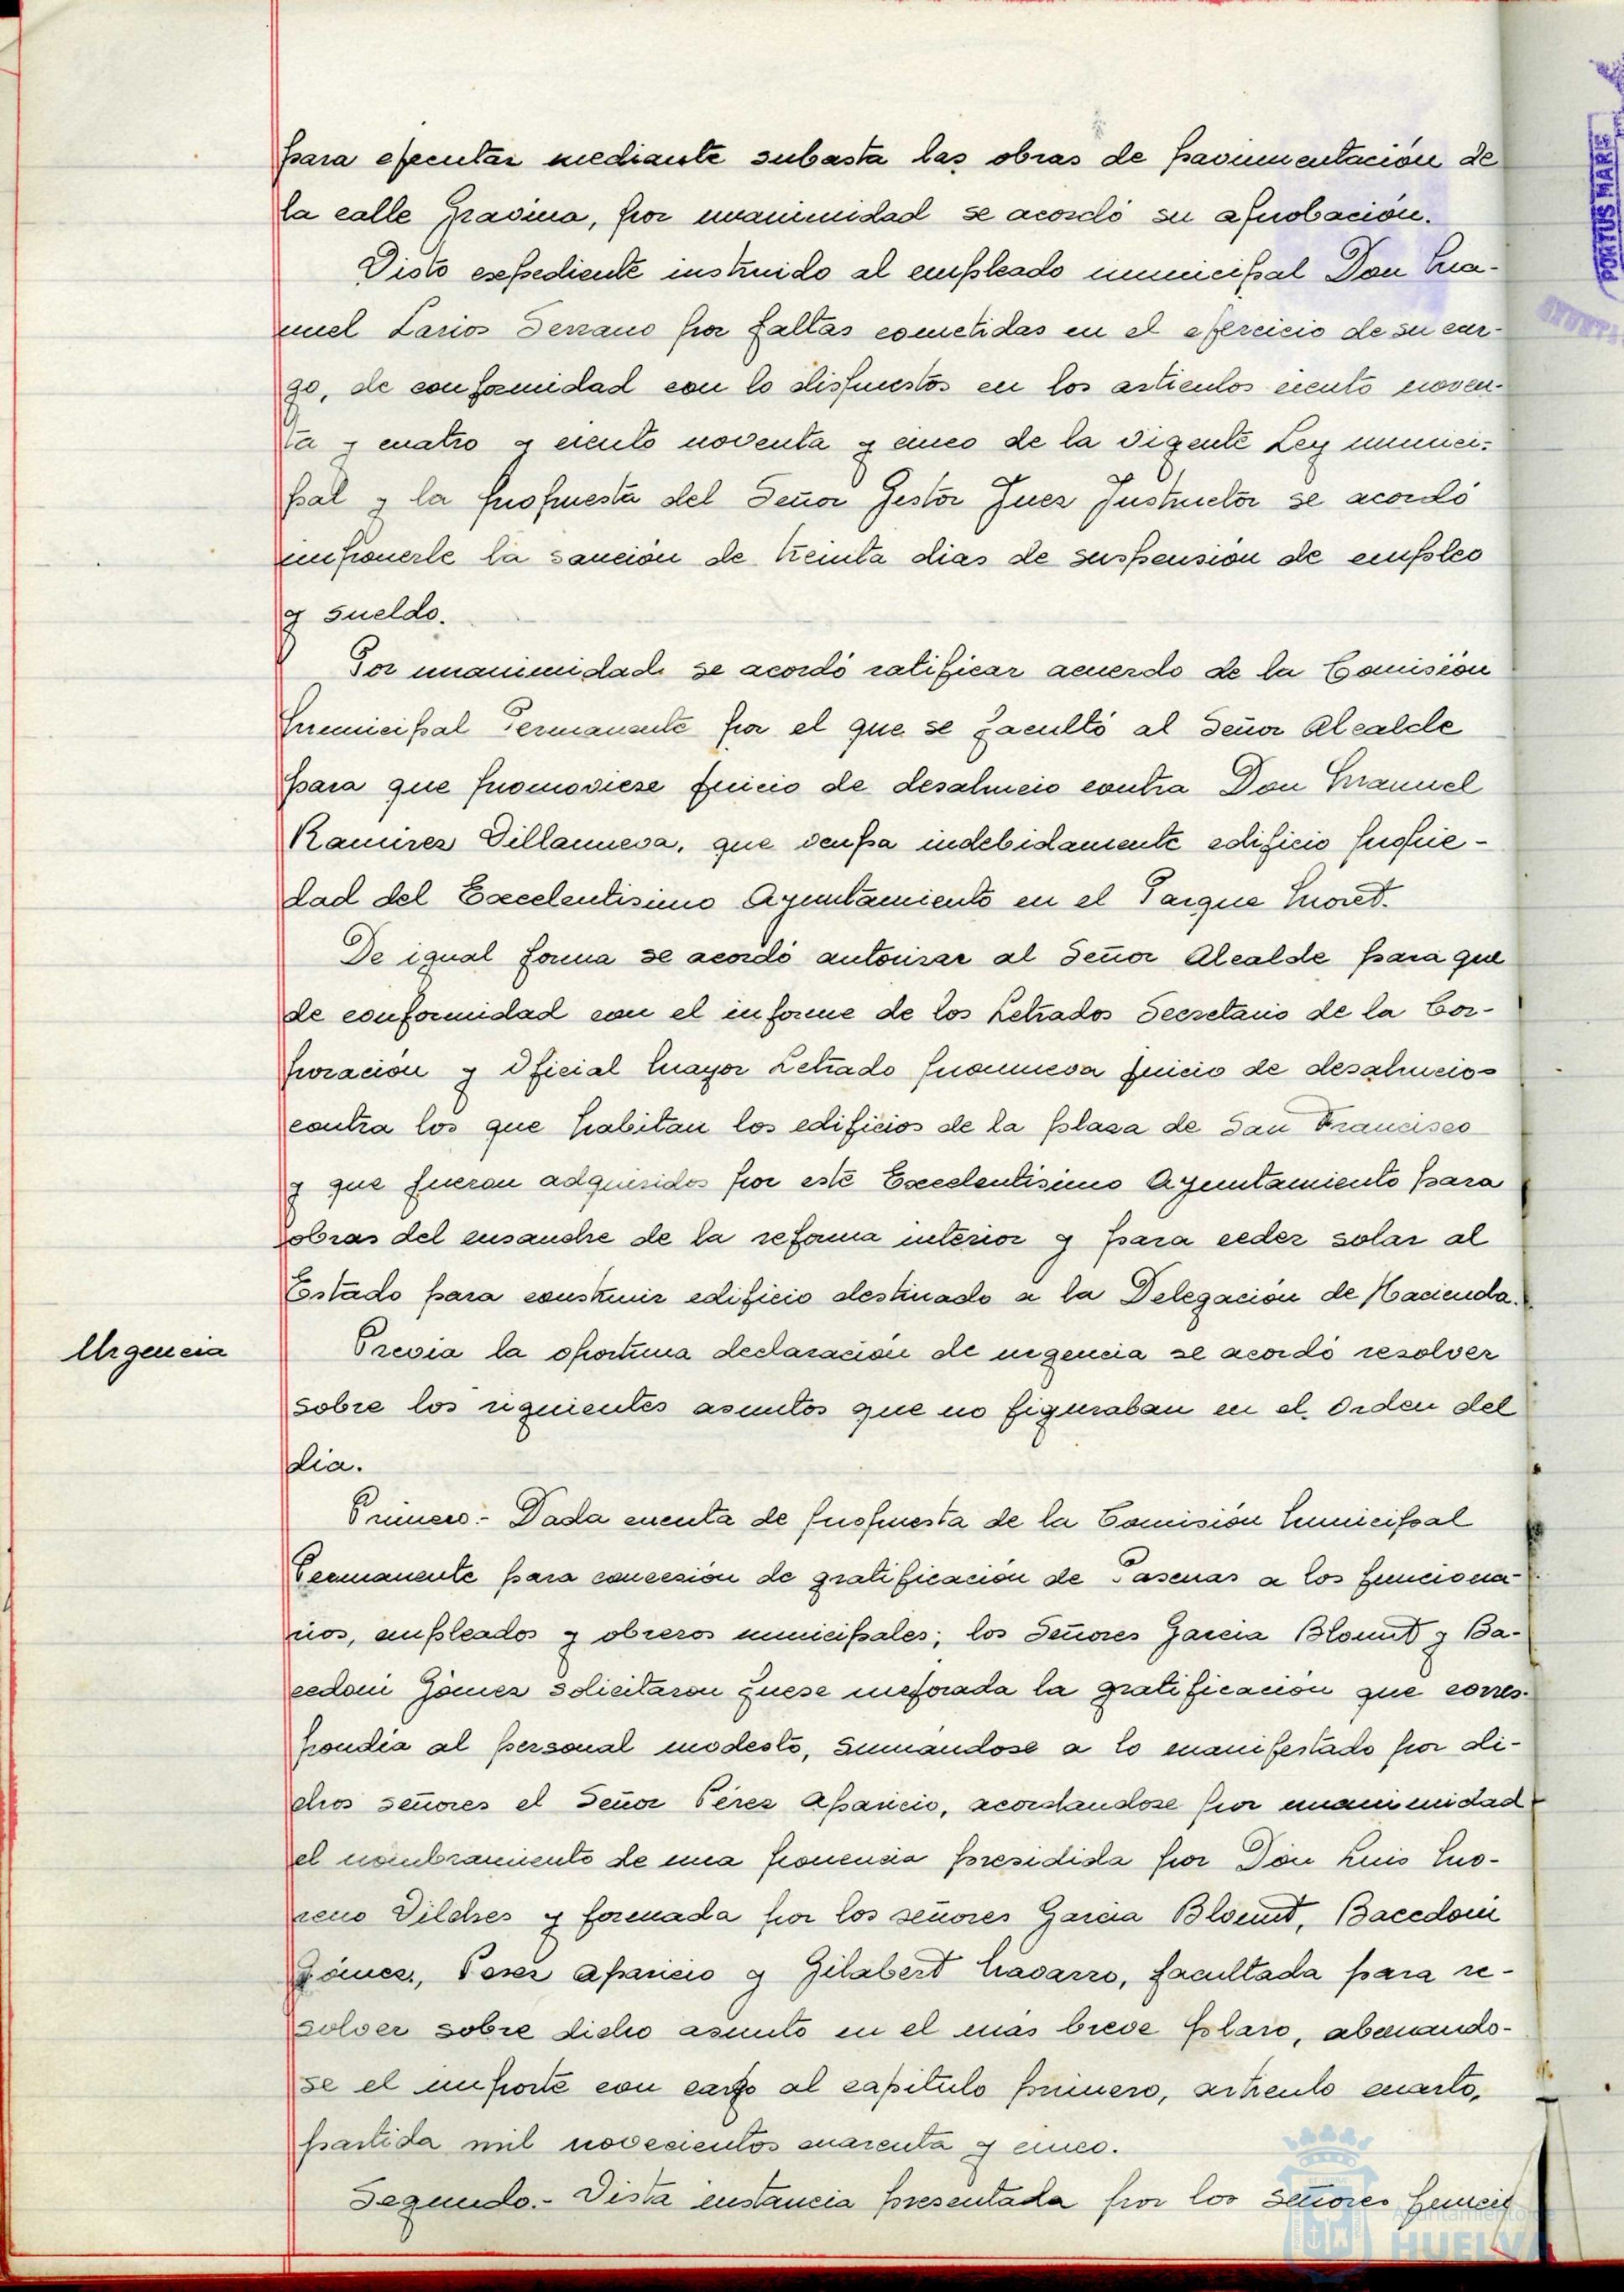 para ejecutar mediante subasta las obras de pavimentación de
la calle Gravina, por unanimidad se acordó su aprobación.
Visto expediente instruido al empleado municipal Don Ma-
nuel Larios Serrano por faltas cometidas en el ejercicio de su car-
go, de conformidad con lo dispuestos en los articulos ciento noven-
ta y cuatro y ciento noventa y cinco de la vigente Ley munici-
pal y la propuesta del Señor Gestor Juez Instructor se acordó
imponerle la sanción de treinta dias de suspensión de empleo
y sueldo.
Por unanimidad se acordó ratificar acuerdo de la Comisión
Municipal Permanente por el que se facultó al Señor Alcalde
para que promoviese juicio de desahucio contra Don Manuel
Ramirez Villanueva, que ocupa indebidamente edificio propie-
dad del Excelentisimo Ayuntamiento en el Parque Moret.
De igual forma se acordó autorizar al Señor Alcalde para que
de conformidad con el informe de los Letrados Secretario de la Cor-
poración y Oficial Mayor Letrado promueva juicio de desahucios
contra los que habitan los edificios de la plaza de San Francisco
y que fueron adquiridos por este Excelentisimo Ayuntamiento para
obras del ensanche de la reforma interior y para ceder solar al
Estado para construir edificio destinado a la Delegación de Hacienda.
Urgencia
Previa la oportuna declaración de urgencia se acordó resolver
sobre los siguientes asuntos que no figuraban en el Orden del
dia.
Primero.- Dada cuenta de propuesta de la Comisión Municipal
Permanente para concesión de gratificación de Pascuas a los funciona-
rios, empleados y obreros municipales; los Señores Garcia Blount y Ba-
cedoni Gómez solicitaron fuese mejorada la gratificación que corres-
pondia al personal modesto, sumandose a lo manifestado por di-
chos señores el Señor Pérez Aparicio, acordandose por unanimidad
el nombramiento de una ponencia presidida por Don Luis Mo-
reno Vilches y formada por los señores Garcia Blount, Bacedoni
Gómez, Perez Aparicio y Gilabert Navarro, facultada para re-
solver sobre dicho asunto en el más breve plazo, abonando-
se el importe con cargo al capitulo primero, articulo cuarto,
partida mil novecientos cuarenta y cinco.
Segundo.- Vista instancia presentada por los Señores
PORTUS MARIS
Ayuntamiento de
HUELVA